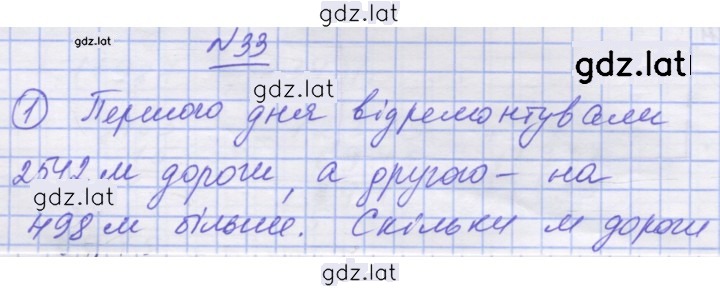 gdz.lat
gdz.lat
№33
gdz.lat
gdz.lat
1 Першого дня відремонтували
2542 м дороги, а другого - на
gdz.lat
498 м більше. Скільки м дороги
gdz.lat